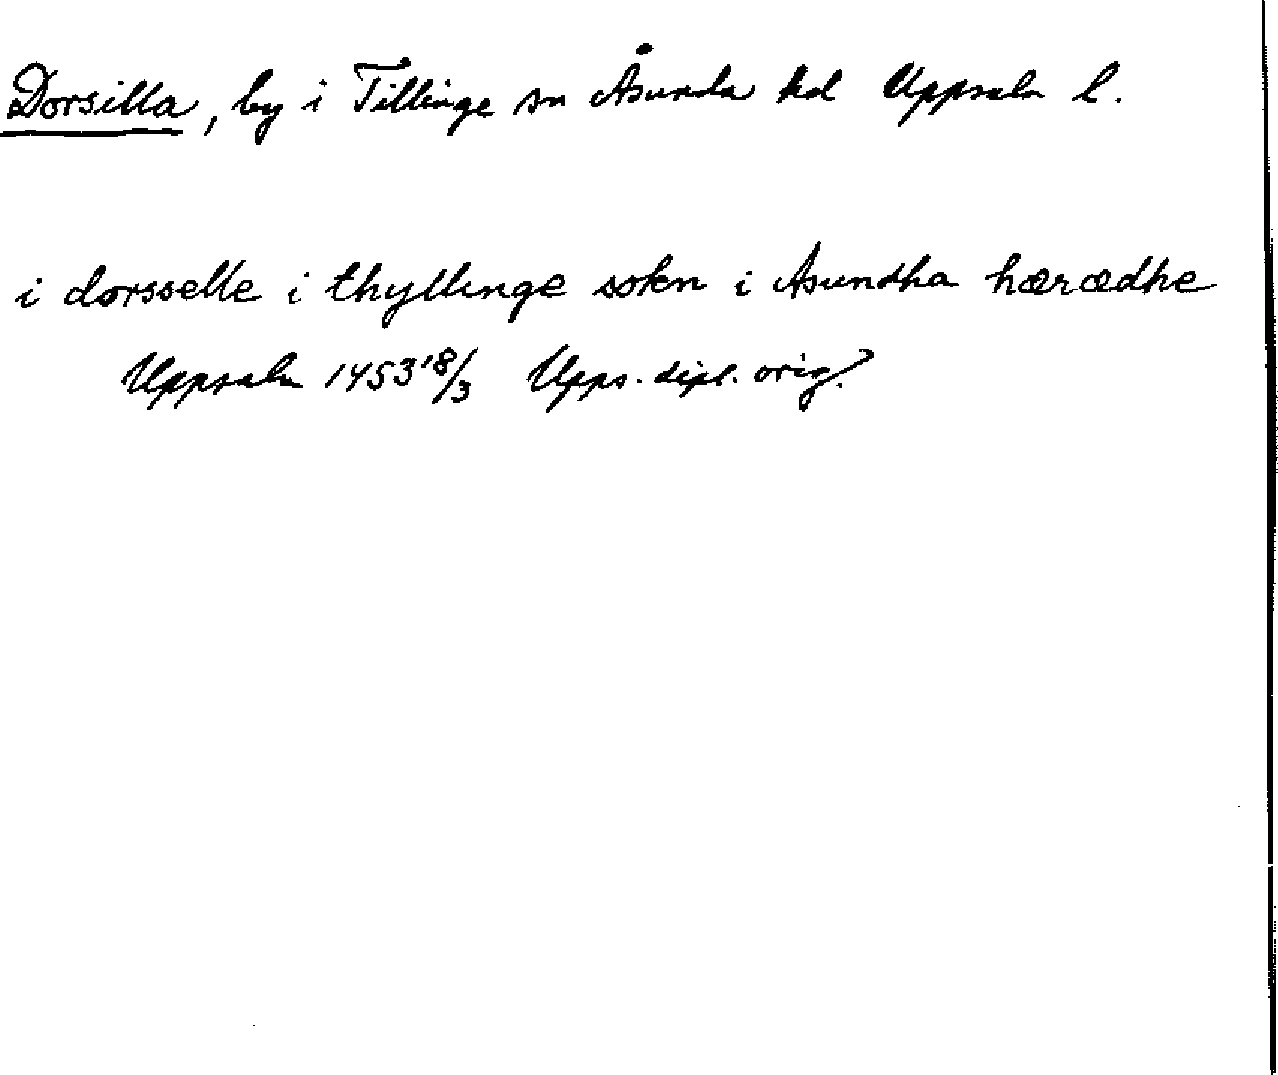 Dorsilla, by i Tillinge sn Åsunda hd Uppsala l.
i dorsselle i thyllinge sokn i Asundha hærædhe
Uppsala 1453 18/3 Upps. dipl. orig.